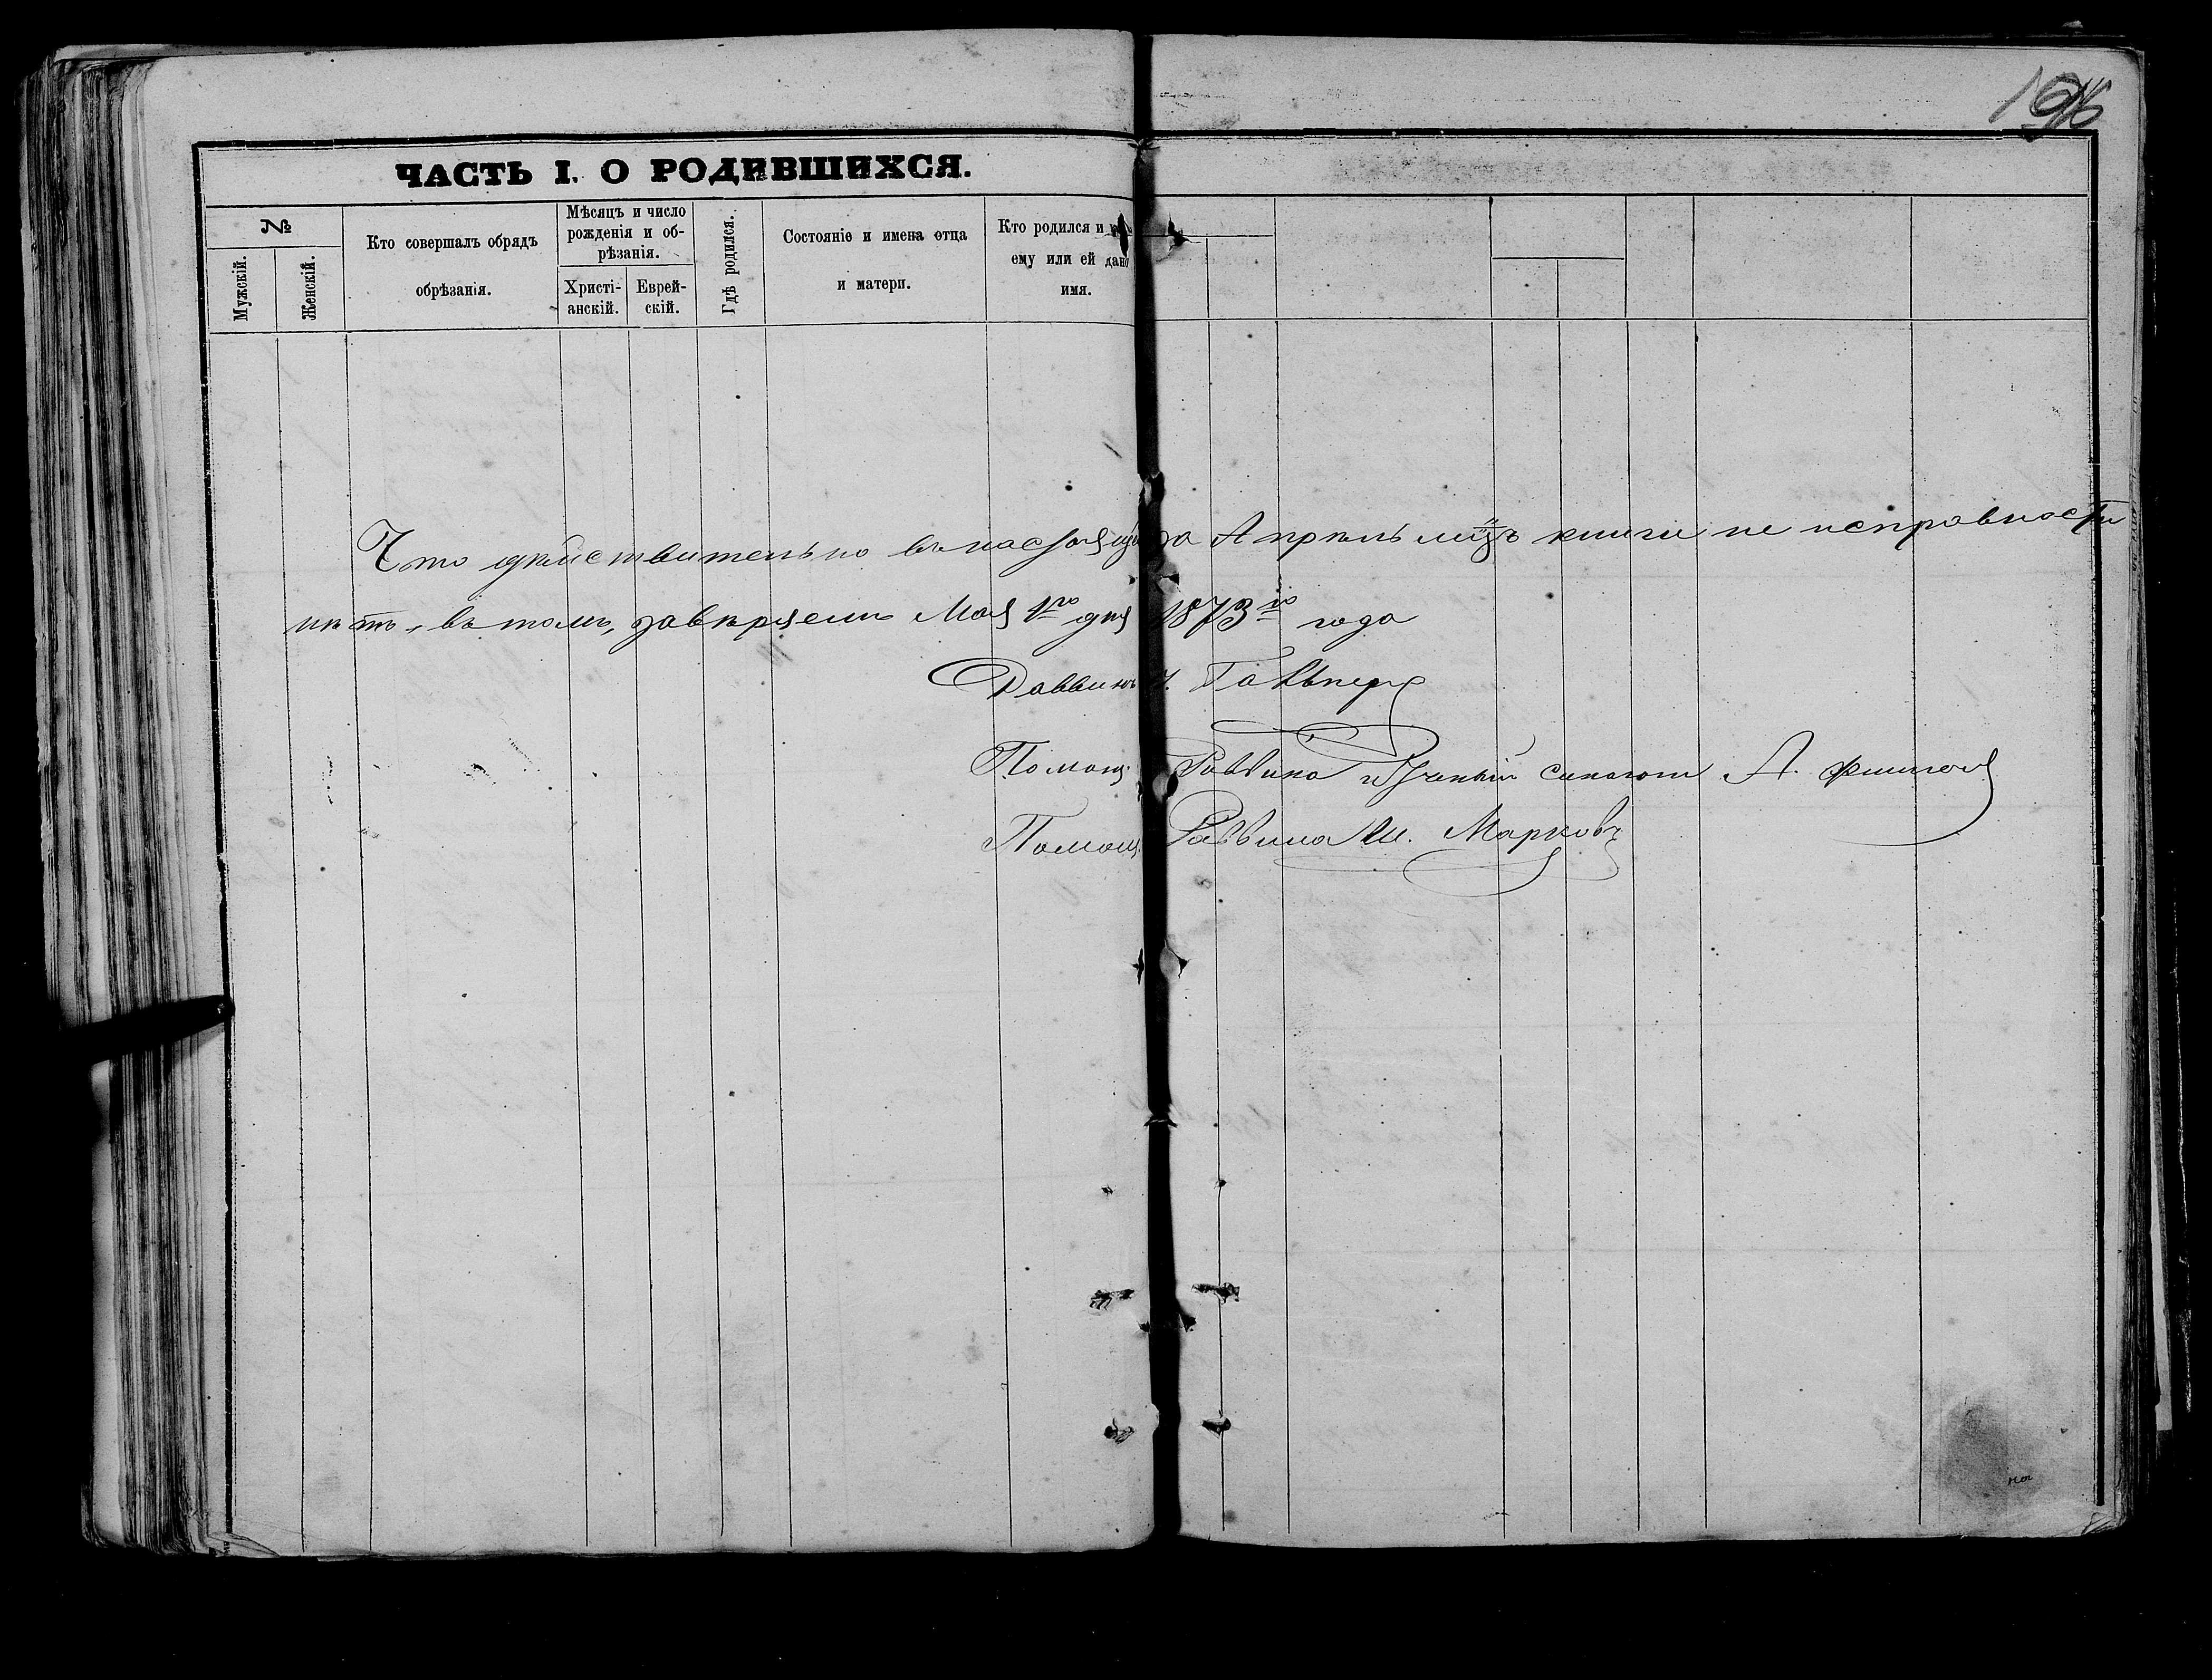 196
ЧАСТЬ I. О РОДИВШИХСЯ.
№
Мужскій.
Женскій.
Кто совершалъ обрядъ
обрѣзанія.
Мѣсяцъ и число
рожденія и об-
рѣзанія.
Христі-
анскій.
Еврей-
скій.
Гдѣ родился.
Состояніе и имена отца
и матери.
Кто родился и
ему или ей дано
имя.
Что дѣйствительно въ настоящей за Апрѣль мцъ книги не исправности
нѣтъ, въ томъ, завѣряемъ Мая 1го дня 1873го года
Раввинъ Гальпер
Помощ. Раввина и Ученый А.
Помощ. Раввина Ш. Марковъ